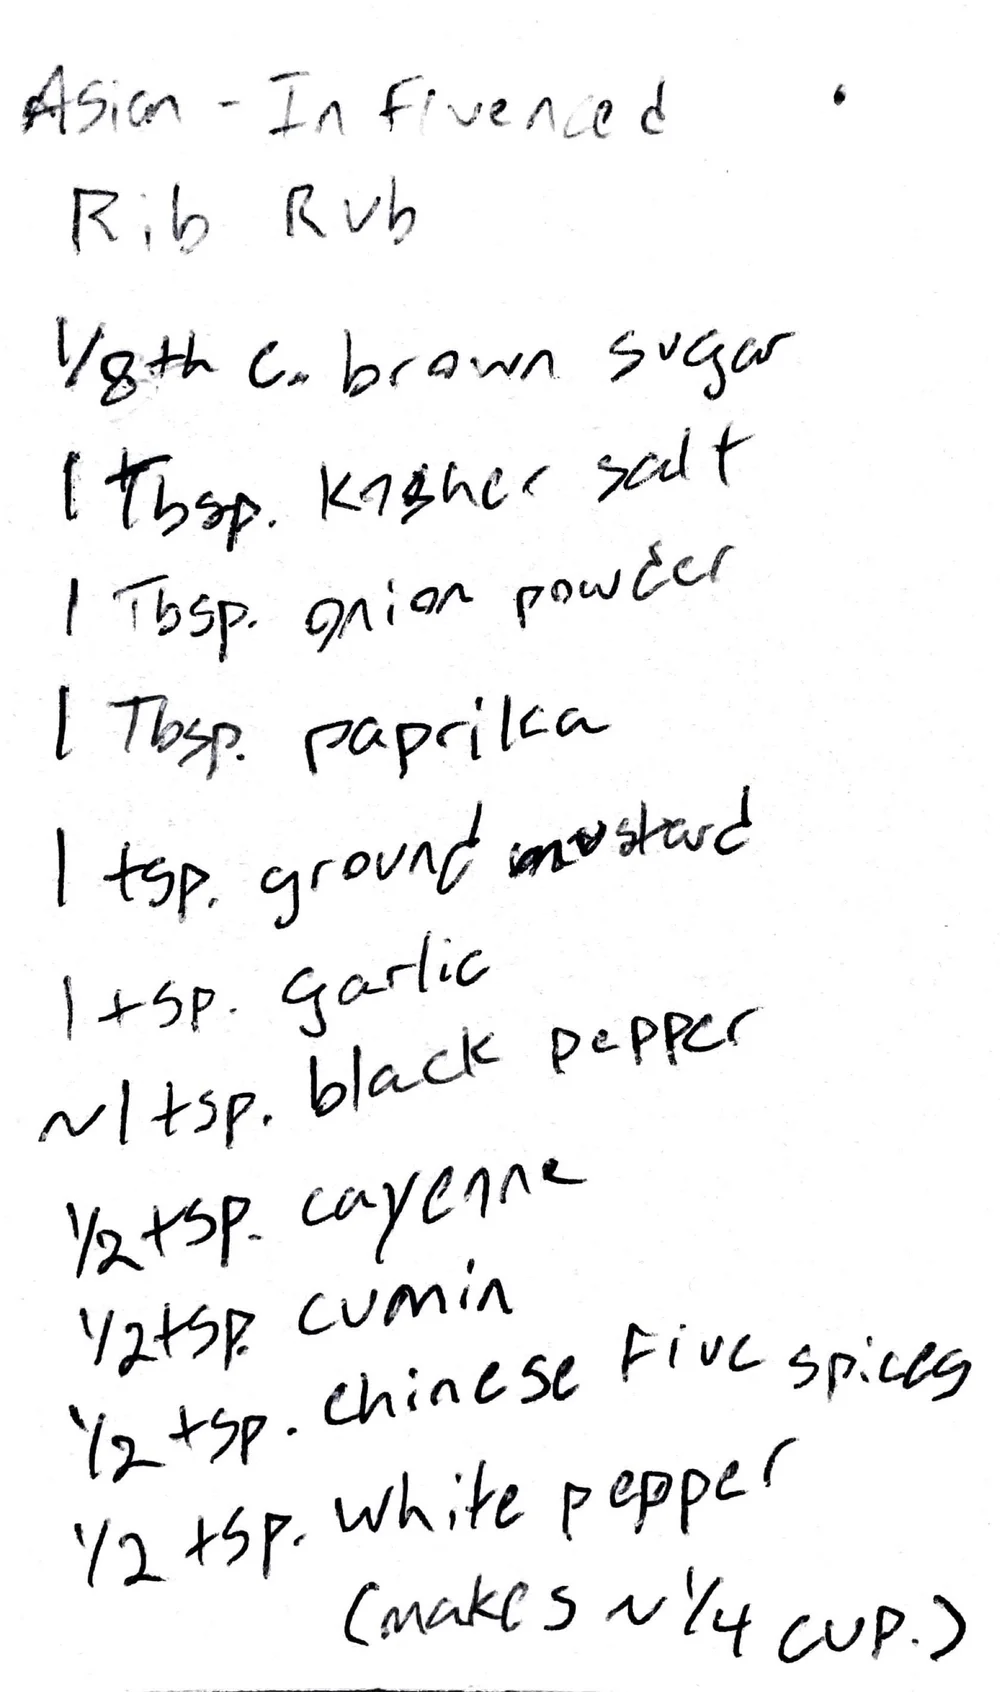 Asian - Influenced
Rib Rub
1/8th c. brown sugar
1 Tbsp. Kosher salt
1 Tbsp. onion powder
1 Tbsp. paprika
1 tsp. ground mustard
1 tsp. garlic
~1 tsp. black pepper
1/2 tsp. cayenne
1/2 tsp. cumin
1/2 tsp. chinese Five spices
1/2 tsp. white pepper
(makes ~ 1/4 cup.)